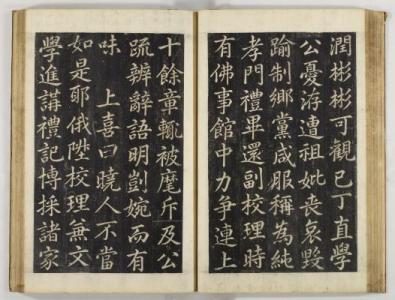 潤彬彬可觀已丁直學
公憂洊遭祖妣喪哀毀
踰制鄉黨咸服稱為純
孝門禮畢還副校理時
有佛事館中力爭連上
十餘章輒被麾斥及公
疏辨辭語明剴婉而有
味 上喜曰曉人不當
如是耶俄陞校理兼文
學進講禮記博採諸家